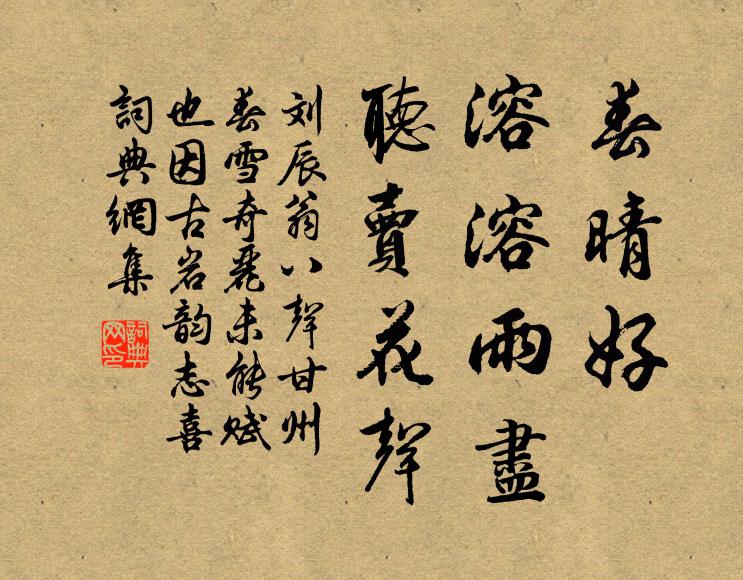 春晴好
溶溶雨盡
聽賣花聲
刘辰翁八聲甘州
春雪奇麗未能賦
也因古岩韵志喜
詞典網集
詞典
网印